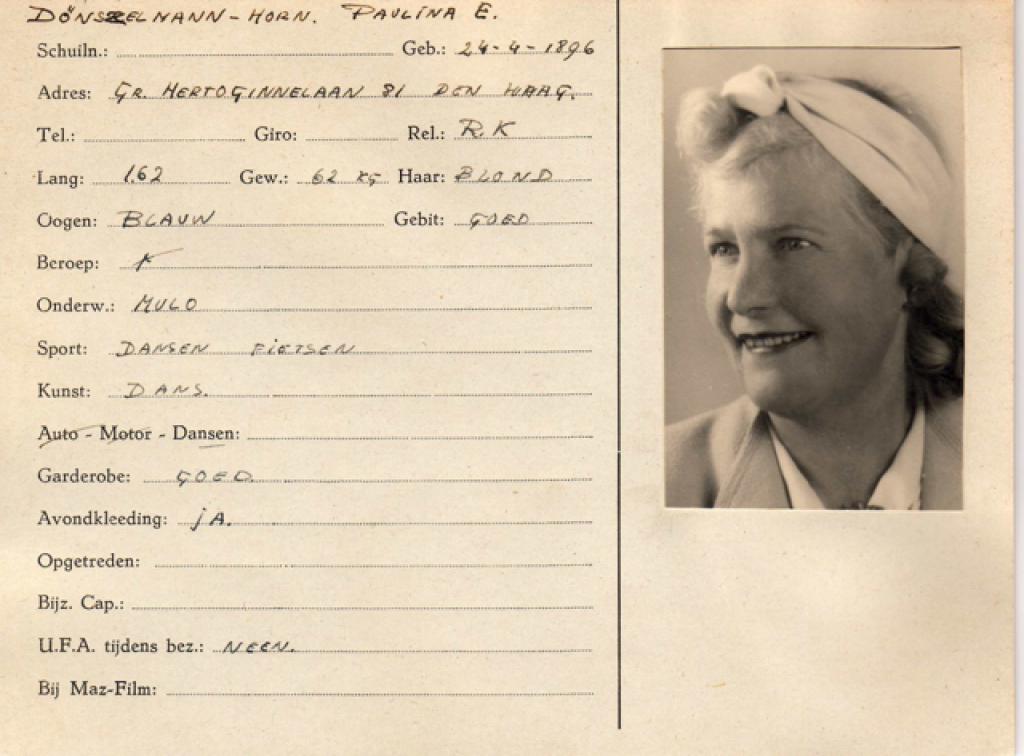 DÖNSZELMANN-HORN. PAULINA E.
Schuiln.: Geb.: 24-4-1896
Adres: GR. HERTOGINNELAAN 81 DEN HAAG.
Tel.: Giro: Rel.: R.K
Lang: 1.62 Gew.: 62 KG Haar: BLOND
Oogen: BLAUW Gebit: GOED
Beroep:
Onderw.: MULO
Sport: DANSEN FIETSEN
Kunst: DANS.
Auto - Motor - Dansen:
Garderobe: GOED.
Avondkleeding: JA.
Opgetreden:
Bijz. Cap.:
U.F.A. tijdens bez.: NEEN.
Bij Maz-Film: